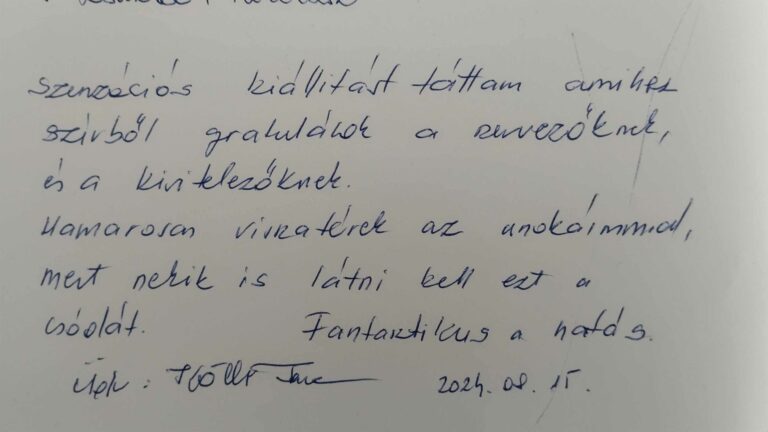 Szenzációs kiállítást láttam amihez
szívből gratulálok a szervezőknek,
és a kivitelezőknek.
Hamarosan visszatérek az unokáimmal,
mert nekik is látni kell ezt a
csodát. Fantasztikus a hatás.
Üdv: 2024. 08. 15.